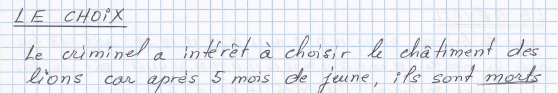 LE CHOIX
Le criminel a intérêt à choisir le châtiment des
lions car après 5 mois de jeune, ils sont morts